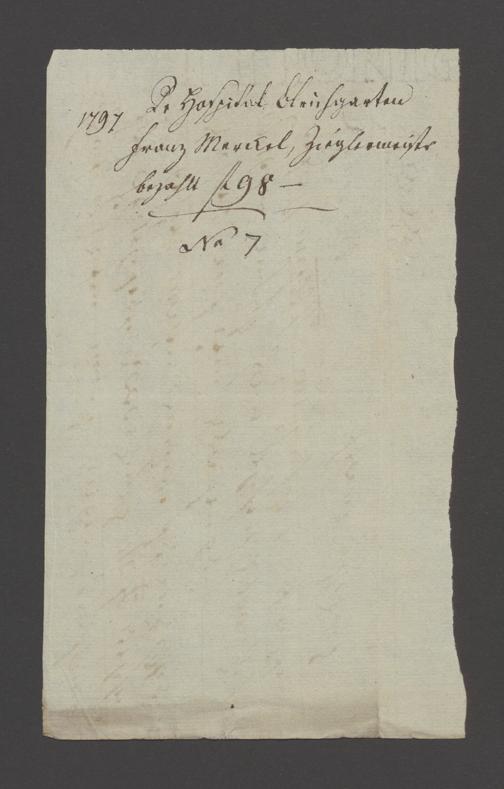 1797 De Hospital Bleichgarten
Franz Merckel, Zieglermeister
bezahlt f 98 —
No 7